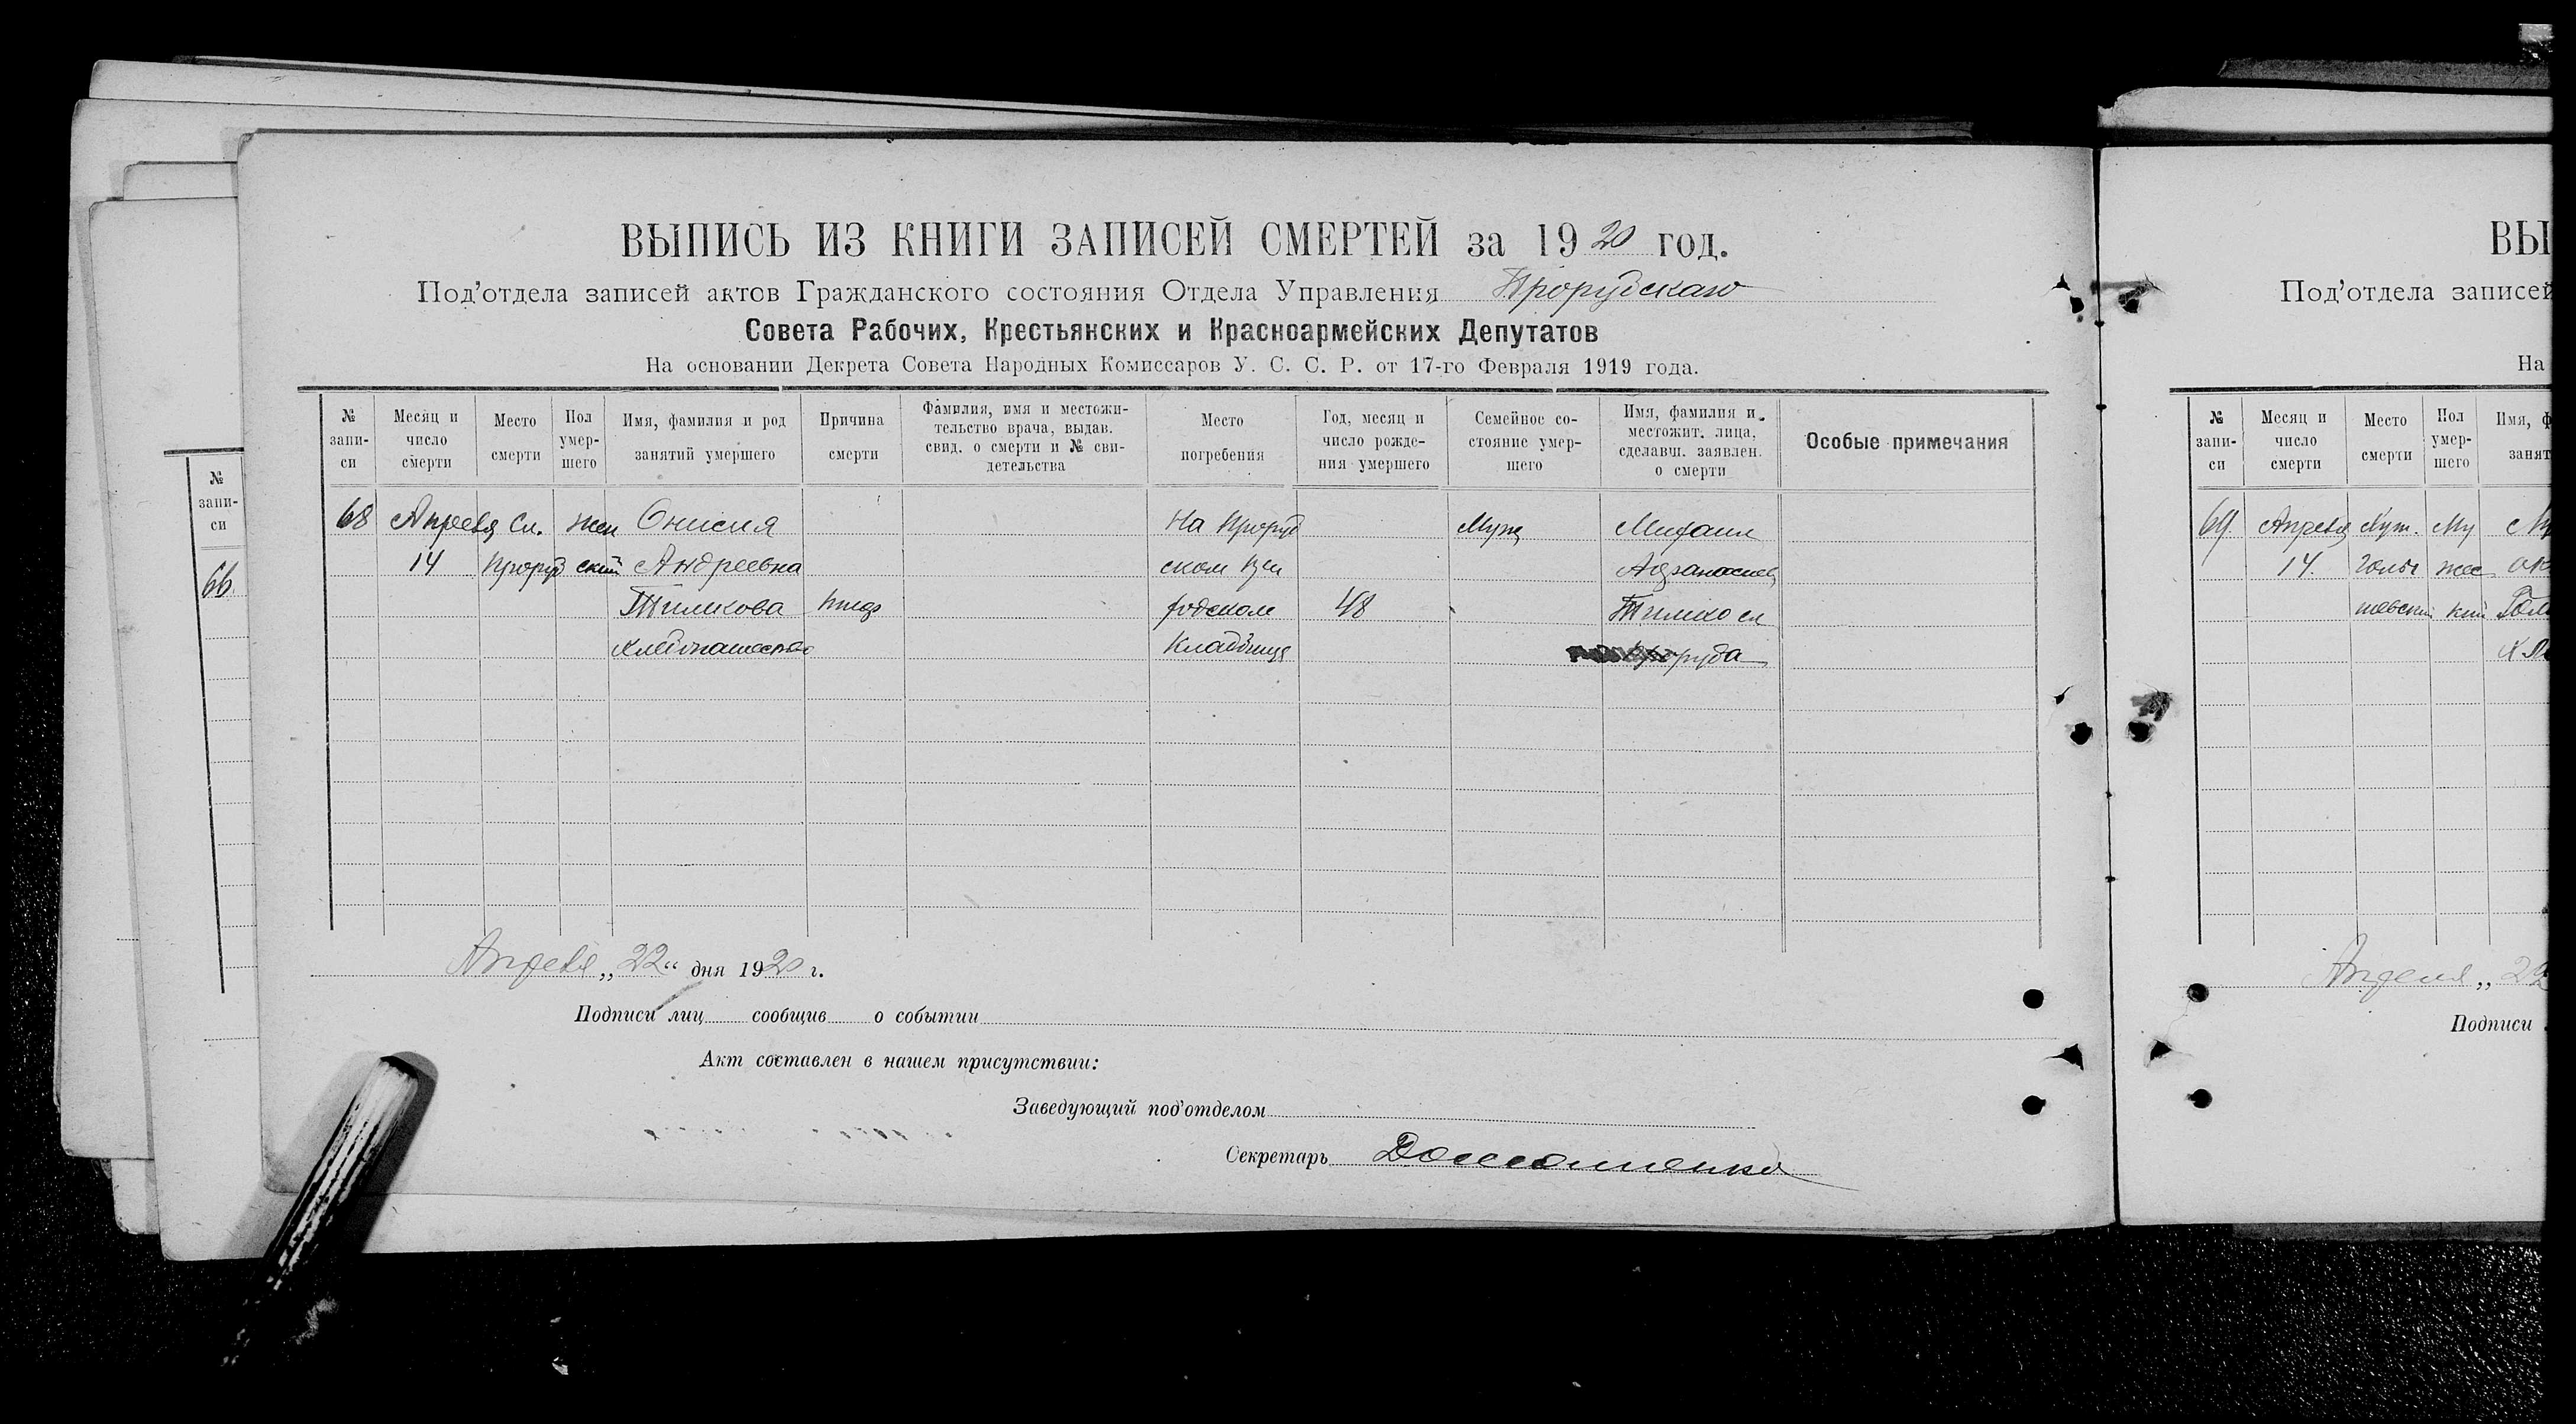 ВЫПИСЬ ИЗ КНИГИ ЗАПИСЕЙ СМЕРТЕЙ за 1920 год.
Под'отдела записей актов Гражданского состояния Отдела Управления Прорубскаго
Совета Рабочих, Крестьянских и Красноармейских Депутатов
На основании Декрета Совета Народных Комиссаров У. С. С. Р. от 17-го Февраля 1919 года.
№ запи-си
Месяц и число смерти
Место смерти
Пол умер-шего
Имя, фамилия и род занятий умершего
Причина смерти
Фамилия, имя и местожи-тельство врача, выдав. свид. о смерти и № сви-детельства
Место погребения
Год, месяц и число рожде-ния умершего
Семейное со-стояние умер-шего
Имя, фамилия и местожит. лица, сделавш. заявлен. о смерти
Особые примечания
68 Апреля Сл. жен Онисия На Проруб Муж Михаил
14 Проруб ский Андреевна ском
Тимкова тиф 48
Хлебопашество Кладбище Проруба
Апреля „22" дня 1920 г.
Подписи лиц сообщив о событии
Акт составлен в нашем присутствии:
Заведующий под'отделом
Секретарь
№ запи-си
66.
ВЫ
Под'отдела записей
На
№ запи-си
Месяц и число смерти
Место смерти
Пол умер-шего
Имя, ф
занят
69. Апреля Хут. Му
14.
Апреля „ 22
Подписи